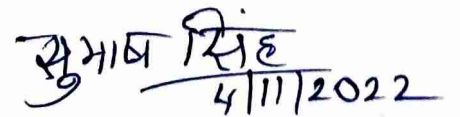 सुभाष सिंह
4/11/2022